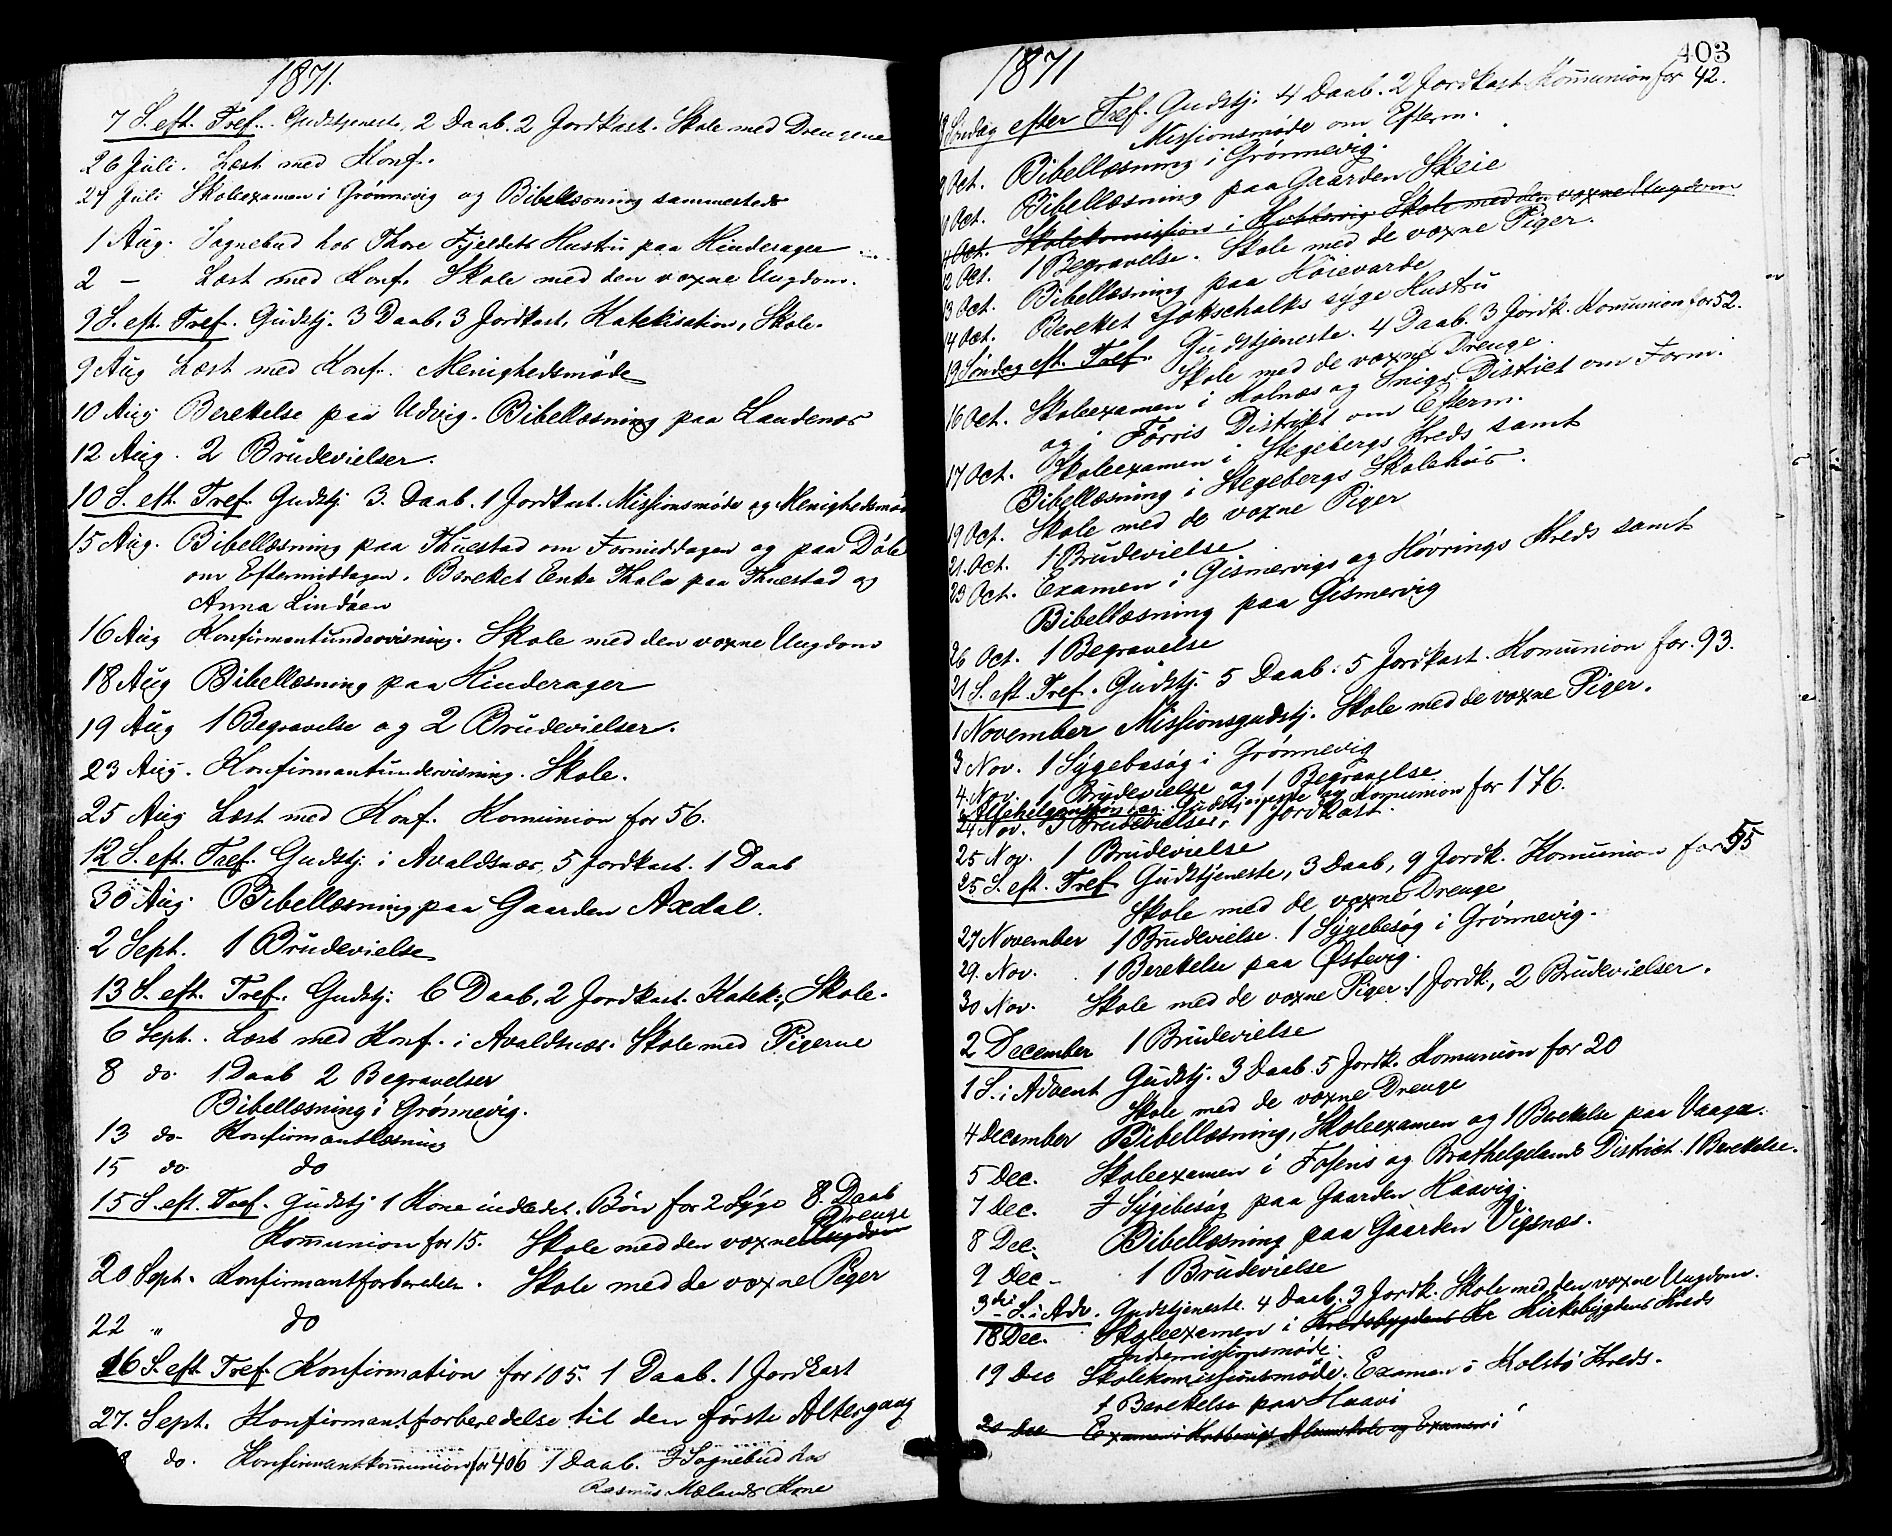 1871.
7 S. eft. Tref. Gudstjeneste, 2 Daab. 2 Jordkast. Skole med Drengene
26 Juli. Læst med Konf.
27 Juli Skoleexamen i Grønnevig og Bibellæsning sammesteds
1 Aug. Sognebud hos Thore Fjeldets Hustru paa Hinderager
2 — Læst med Konf. Skole med den voxne Ungdom.
9 S. eft. Tref. Gudstj. 3 Daab, 3 Jordkast, Katekisation, Skole.
9 Aug Læst med Konf. Menighedsmøde
10 Aug Berettelse paa Udvig. Bibellæsning paa Landenæs
12 Aug. 2 Brudevielser.
10 S. eft. Tref. Gudstj. 3. Daab. 1 Jordkast. Missionsmøde og Menighedsmød
15 Aug. Bibellæsning paa Thuestad om Formiddagen og paa Døle
om Eftermiddagen. Berettet Enke Thala paa Thuestad og
Anna Lindøen
16 Aug Konfirmantundervisning. Skole med den voxne Ungdom
18 Aug Bibellæsning paa Hinderager
19 Aug 1 Begravelse og 2 Brudevielser.
23 Aug. Konfirmantundervisning. Skole.
25 Aug Læst med Konf. Komunion for 56.
12 S. eft. Tref. Gudstj. i Avaldsnæs, 5 Jordkast. 1 Daab
30 Aug. Bibellæsning paa Gaarden Axdal.
2 Sept. 1 Brudevielse
13 S. eft. Tref. Gudstj. 6 Daab, 2 Jordkast. Katek., Skole.
6 Sept. Læst med Konf. i Avaldsnæs. Skole med Pigerne
8 do 1 Daab 2 Begravelser
Bibellæsning i Grønnevig.
13 do Konfirmantlæsning
15 do do
15 S. eft. Tref. Gudstj 1 Kone indledet. Bøn for 2 Syge 8. Daab
Drenge
Kommunion for 15. Skole med den voxne Ungdom
20 Sept. Konfirmantforberedelse. Skole med de voxne Piger
22 " do
16 S. eft Tref. Konfirmation for 105. 1 Daab. 1 Jordkast
27. Sept. Konfirmantforberedelse til den første Altergang
do. Konfirmantkommunion for 406 1 Daab. Sognebud hos
Rasmus Mælands Kone
403
1871
Søndag efter Tref. Gudstj. 4 Daab. 2 Jordkast Kommunion for 42.
Missionsmøde om Efterm.
Oct. Bibellæsning i Grønnevig.
Oct. Bibellæsning paa Gaarden Skeie
Oct. Skolekomission i Kobbervig Skole med den voxne Ungdom
12 Oct. 1 Begravelse. Skole med de voxne Piger.
13 Oct. Bibellæsning paa Høievarde
14 Oct. Berettet Gotschalks syge Hustru
19 Søndag eft. Tref. Gudstjeneste. 4 Daab. 3 Jordk. Komunion for 52.
Skole med de voxne Drenge.
16 Oct. Skoleexamen i Holnæs og Snigs District om Form.
og i Førris Distrikt om Efterm.
17 Oct. Skoleexamen i Stegebergs Kreds samt
Bibellæsning i Stegebergs Skolehus.
19 Oct. Skole med de voxne Piger
21. Oct. 1 Brudevielse
23 Oct. Examen i Gismervigs og Høvrings Kreds samt
Bibellæsning paa Gismervig
26 Oct. 1 Begravelse
21 S. eft. Tref. Gudstj. 5 Daab. 5 Jordkast. Komunion for. 93.
1 November Missionsgudstj. Skole med de voxne Piger.
3 Nov. 1 Sygebesøg i Grønnevig
4. Nov. 1 Brudevielse og 1 Begravelse
Allehelgens Gudstjeneste og Komunion for 176.
24 Nov. 3 Brudevielser, 1 Jordkast.
25 Nov. 1 Brudevielse
25 S. eft. Tref Gudstjeneste, 3 Daab, 9 Jordk. Komunion for 55
Skole med de voxne Drenge
27 November 1 Brudevielse. 1 Sygebesøg i Grønnevig.
29. Nov. 1 Berettelse paa Østevig.
30 Nov. Skole med de voxne Piger. 1 Jordk., 2 Brudevielser.
2 December 1 Brudevielse
1 S. i Advent Gudstj. 3 Daab. 5 Jordk. Komunion for 20
Skole med de voxne Drenge
4 December Bibellæsning, Skoleexamen og 1 Berettelse paa Vaage.
5 Dec. Skoleexamen i Fosens og Brathelgelands District. 1 Berettelse.
7 Dec. Sygebesøg paa Gaarden Haavig.
8 Dec. Bibellæsning paa Gaarden Vigsnæs.
9 Dec. 1 Brudevielse
3die S. i Adv. Gudstjeneste. 4 Daab. 3 Jordk. Skole med den voxne Ungdom.
18 Dec. Skoleexamen i Kredsbygdens Kr Kirkebygdens Kreds
Indremissionsmøde.
19 Dec Skolekomissionsmøde. Examen i Kolstø Kreds.
1 Berettelse paa Haavi
20 Dec Examen i Kobbervigs Almueskole og Examen i